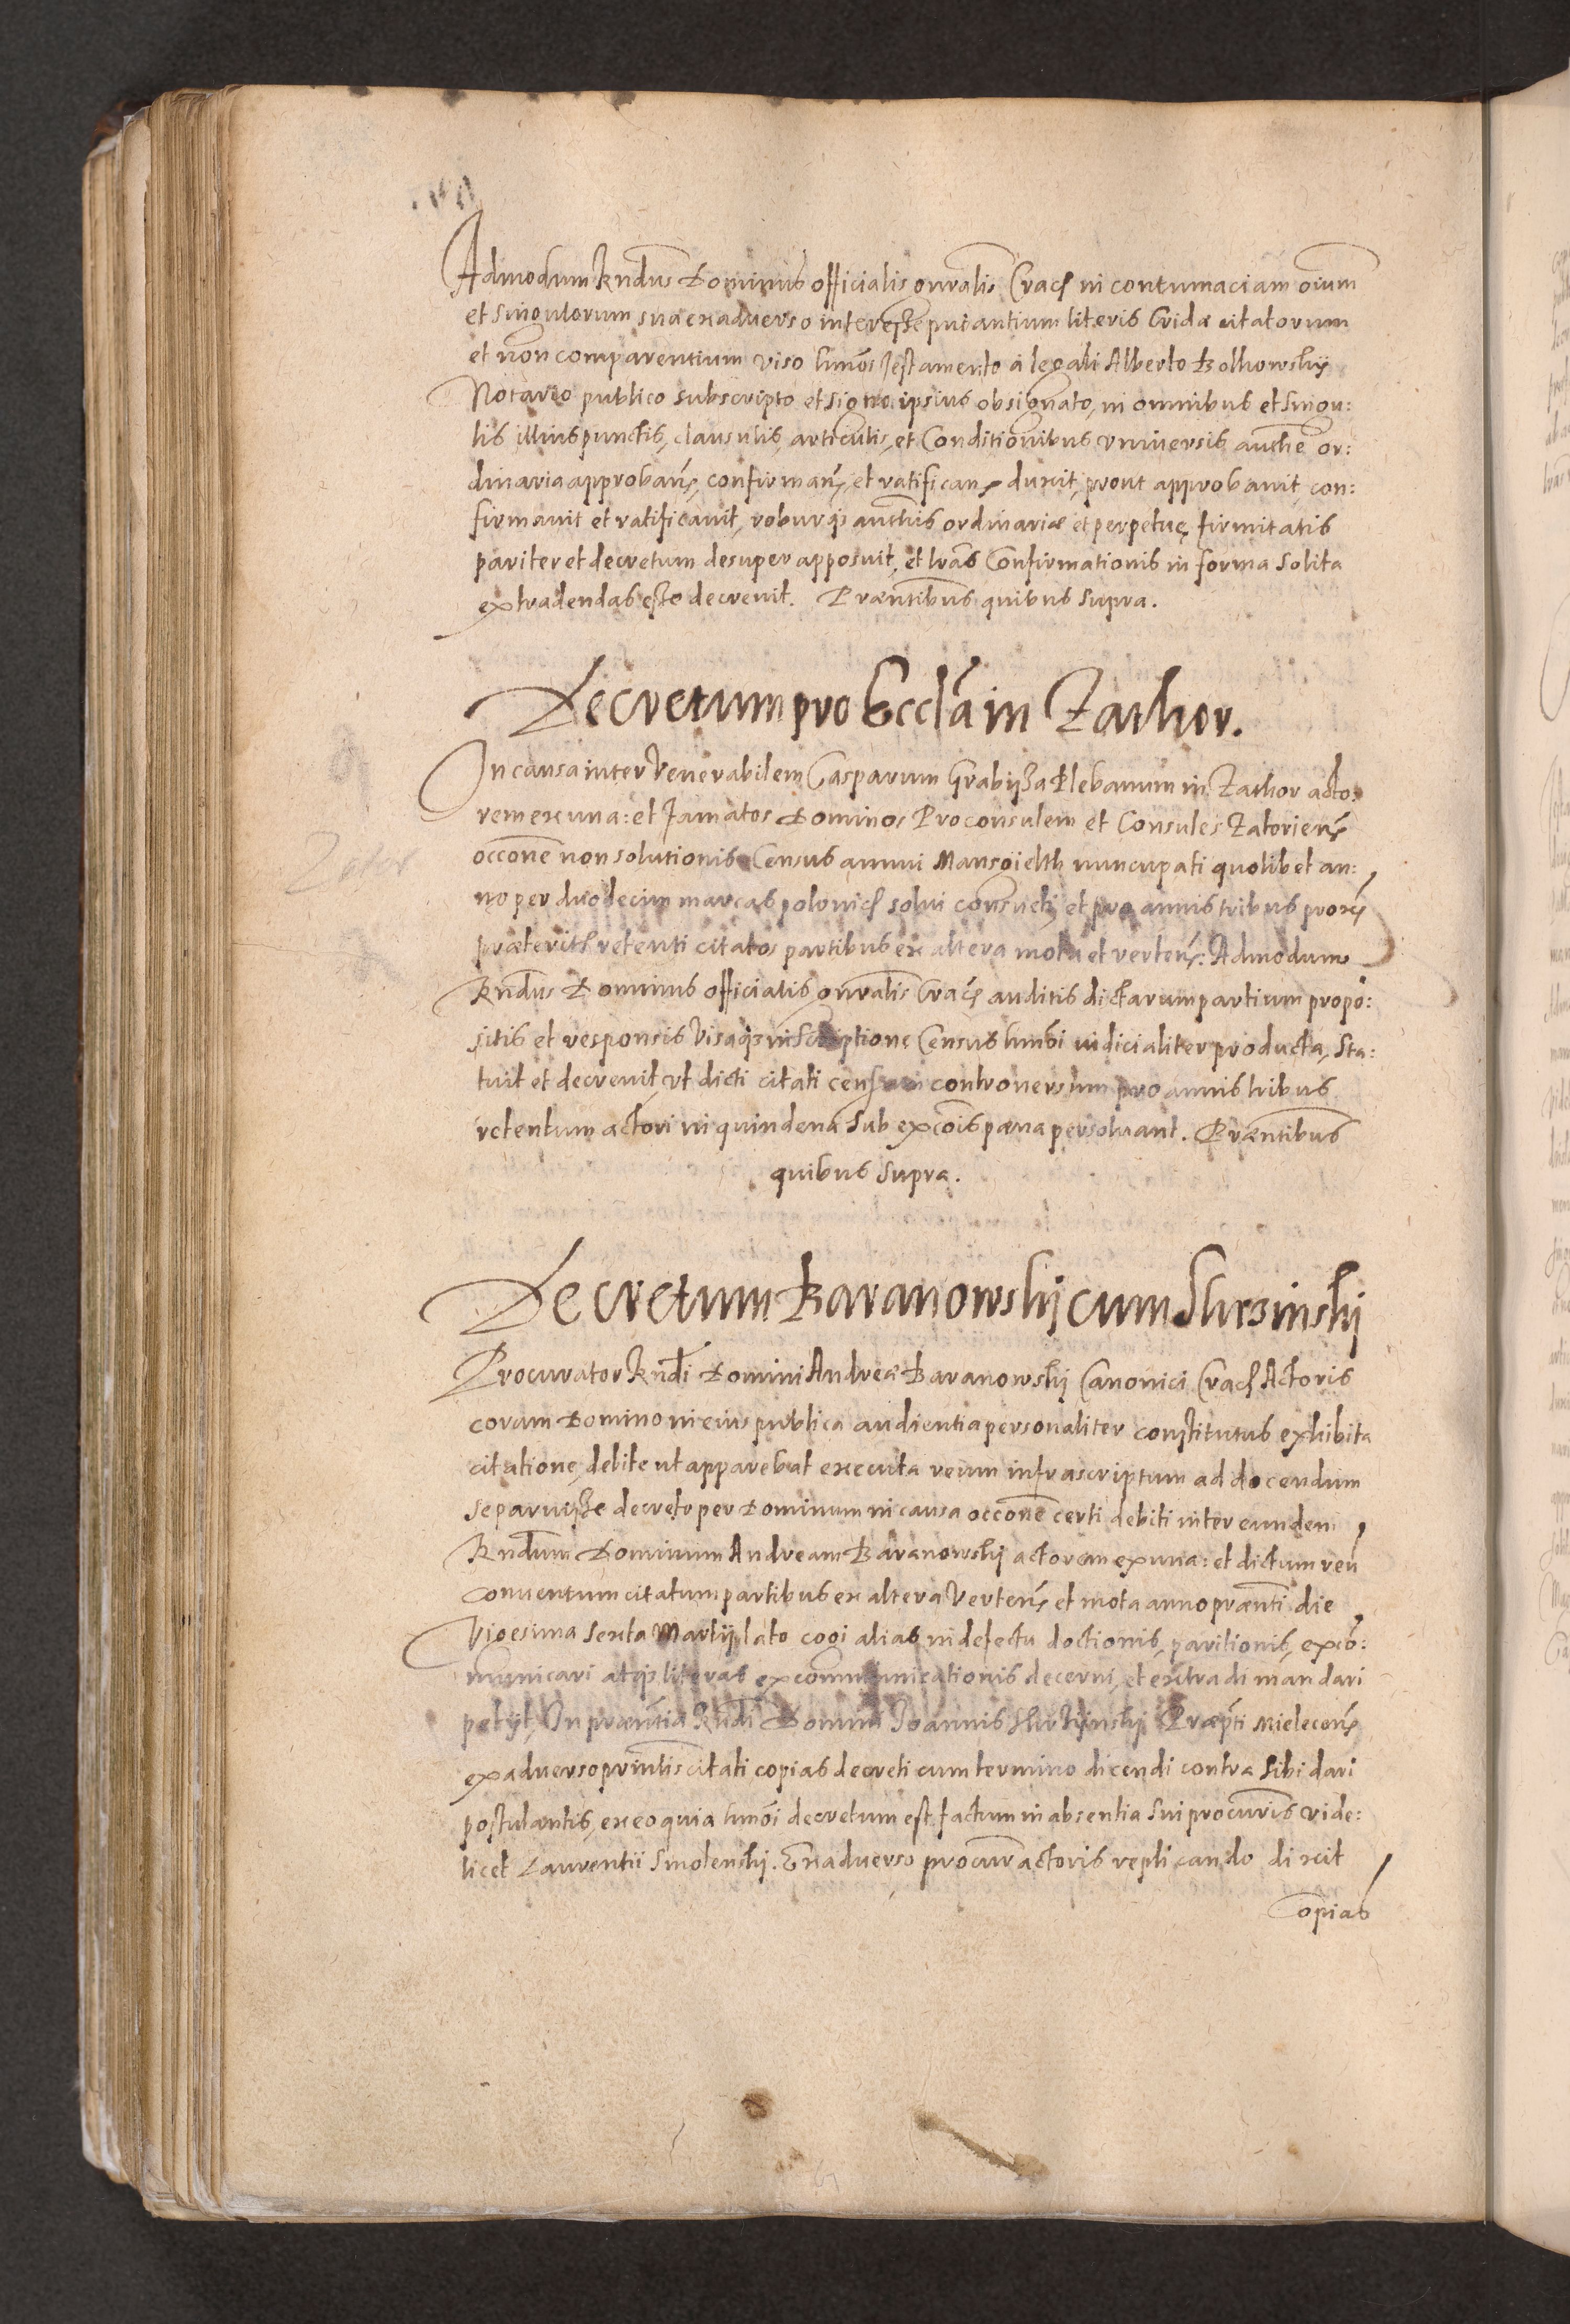 Admodum Rndus Dominus officialis gnralis Crac in contumaciam oium
et singulorum sua ex adverso interesse putantium literis Cridæ citatorum
et non comparentium viso hmoi Testamento à legali Alberto Bolhowskij
Notario publico subscripto et signo ipsius obsignato, in omnibus et singu:
lis illius punctis, clausulis, articulis, et Conditionibus vniversis authe or:
dinaria approbans, confirmans, et ratificans duxit, prout approbavit, con:
firmavit et ratificavit, roburq authis ordinariæ et perpetuę firmitatis
pariter et decretum desuper apposuit, et lras Confirmationis in forma solita
extradendas esse decrevit. Præntibus quibus supra.
Decretum pro Ecclia in Zathor.
In causa inter Venerabilem Casparum Grabijsza Plebanum in Zathor acto:
rem ex una: et famatos Dominos Proconsulem et Consules Zatoriens
occone non solutionis Census annui Mansgieltb nuncupati quolibet an:
no per duodecim marcas polonic solui consueti, et pro annis tribus proxe
præterith retenti citatos partibus ex altera mota et vertens: Admodum
Rndus Dominus officialis gnralis Crac auditis dictarum partium propo:
sitis et responsis Visaq inscriptione Census hmoi iudicialiter producta, sta:
tuit et decrevit, vt dicti citati censum controversum pro annis tribus
retentum actori in quindena sub excois pæna persolvant. Præntibus
quibus supra.
Zator
Decretum Baranowskij cum Skrzinskj
Procurator Rndi Domini Andreæ Baranowskij Canonici Crac Actoris
coram Domino in eius publica audientia personaliter constitutus exhibita
citatione, debite ut apparebat executa reum infrascriptum ad docendum
se paruisse decreto per Dominum in causa occone certi debiti inter eundem
Rndum Dominum Andream Baranowskij actorem ex una: et dictum reu
conventum citatum partibus ex altera Vertens et mota anno prænti die
Vigesima sexta Martij lato cogi alias in defectu doctionis, paritionis, exco:
municari atq literas excommunicationis decerni, et extradi mandari
petijt, In præntia Rndi Domini Joannis Skrzijnskij Præpti Mielecens
ex adverso prinlis citati copias decreti cum termino dicendi contra sibi dari
postulantis, ex eo quia hmoi decretum est factum in absentia sui procuris vide:
licet Laurentii Smolenskj. Ex adverso procur actoris replicando dixit
Copias